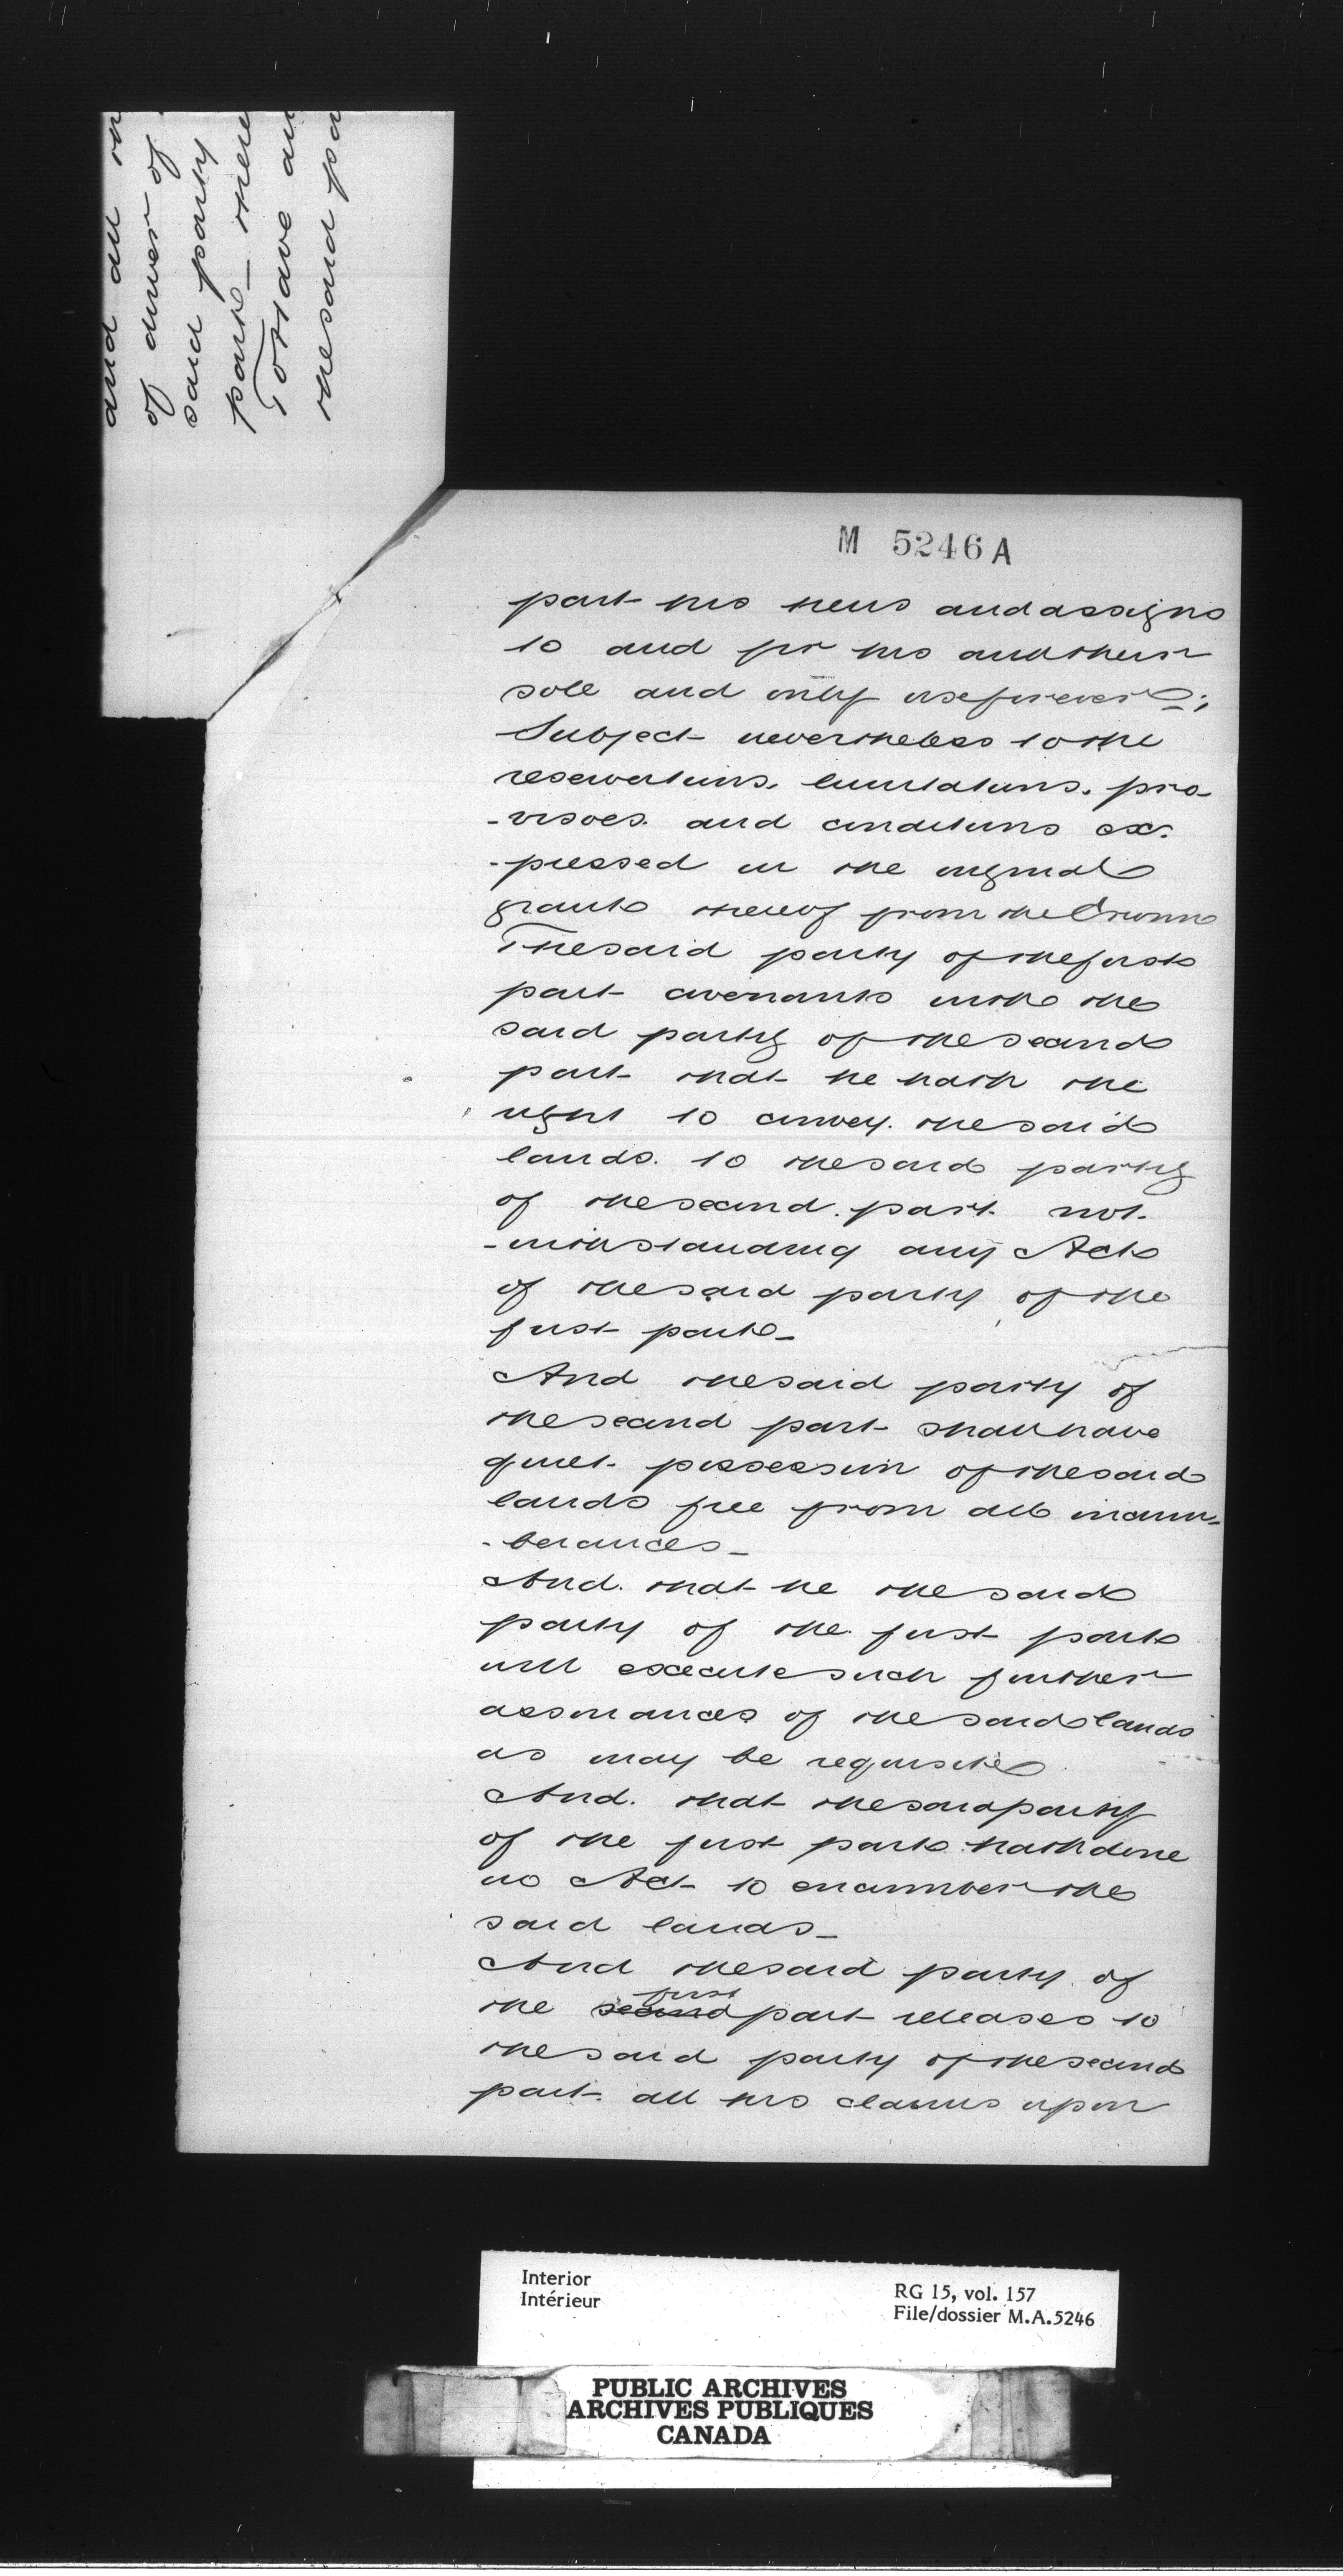 and all
of dower of
said party
part_
To Have an
the said pa
M 5246 A
part his heirs and assigns
to and for his and their
sole and only use forever;
Subject nevertheless to the
reservations, limitations, pro-
-visoes and conditions ex-
-pressed in the original
grant thereof from the Crown
The said party of the first
part covenants with the
said party of the second
part that he hath the
right to convey the said
lands to the said party
of the second part not-
-withstanding any Act
of the said party of the
first part_
And the said party of
the second part shall have
quiet possession of the said
lands free from all incum-
-berances_
And that he the said
party of the first part
will execute such further
assurances of the said lands
as may be requisite
And that the said party
of the first part hath done
no Act to encumber the
said lands_
And the said party of
the second first part releases to
the said party of the second
part all his claims upon
Interior
Intérieur
RG 15, vol. 157
File/dossier M.A.5246
PUBLIC ARCHIVES
ARCHIVES PUBLIQUES
CANADA